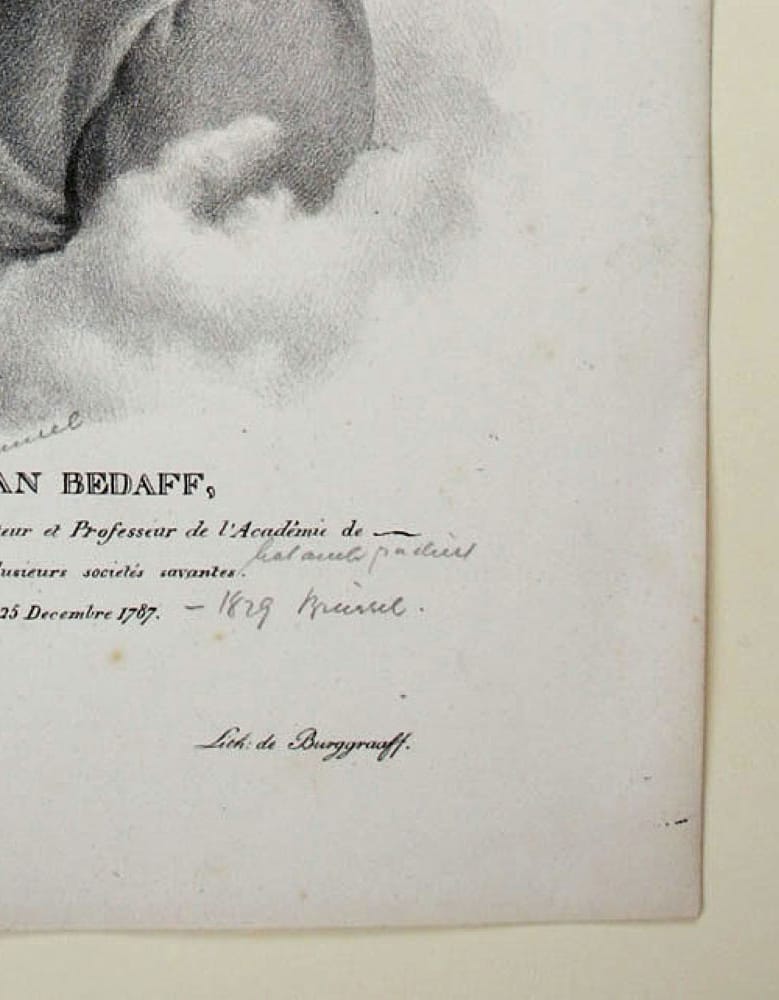 AN BEDAFF,
teur et Professeur de l'Académie de
lusieurs societés savantes.
25 Decembre 1787. – 1829 Brüssel.
Lith: de Burggraaff.